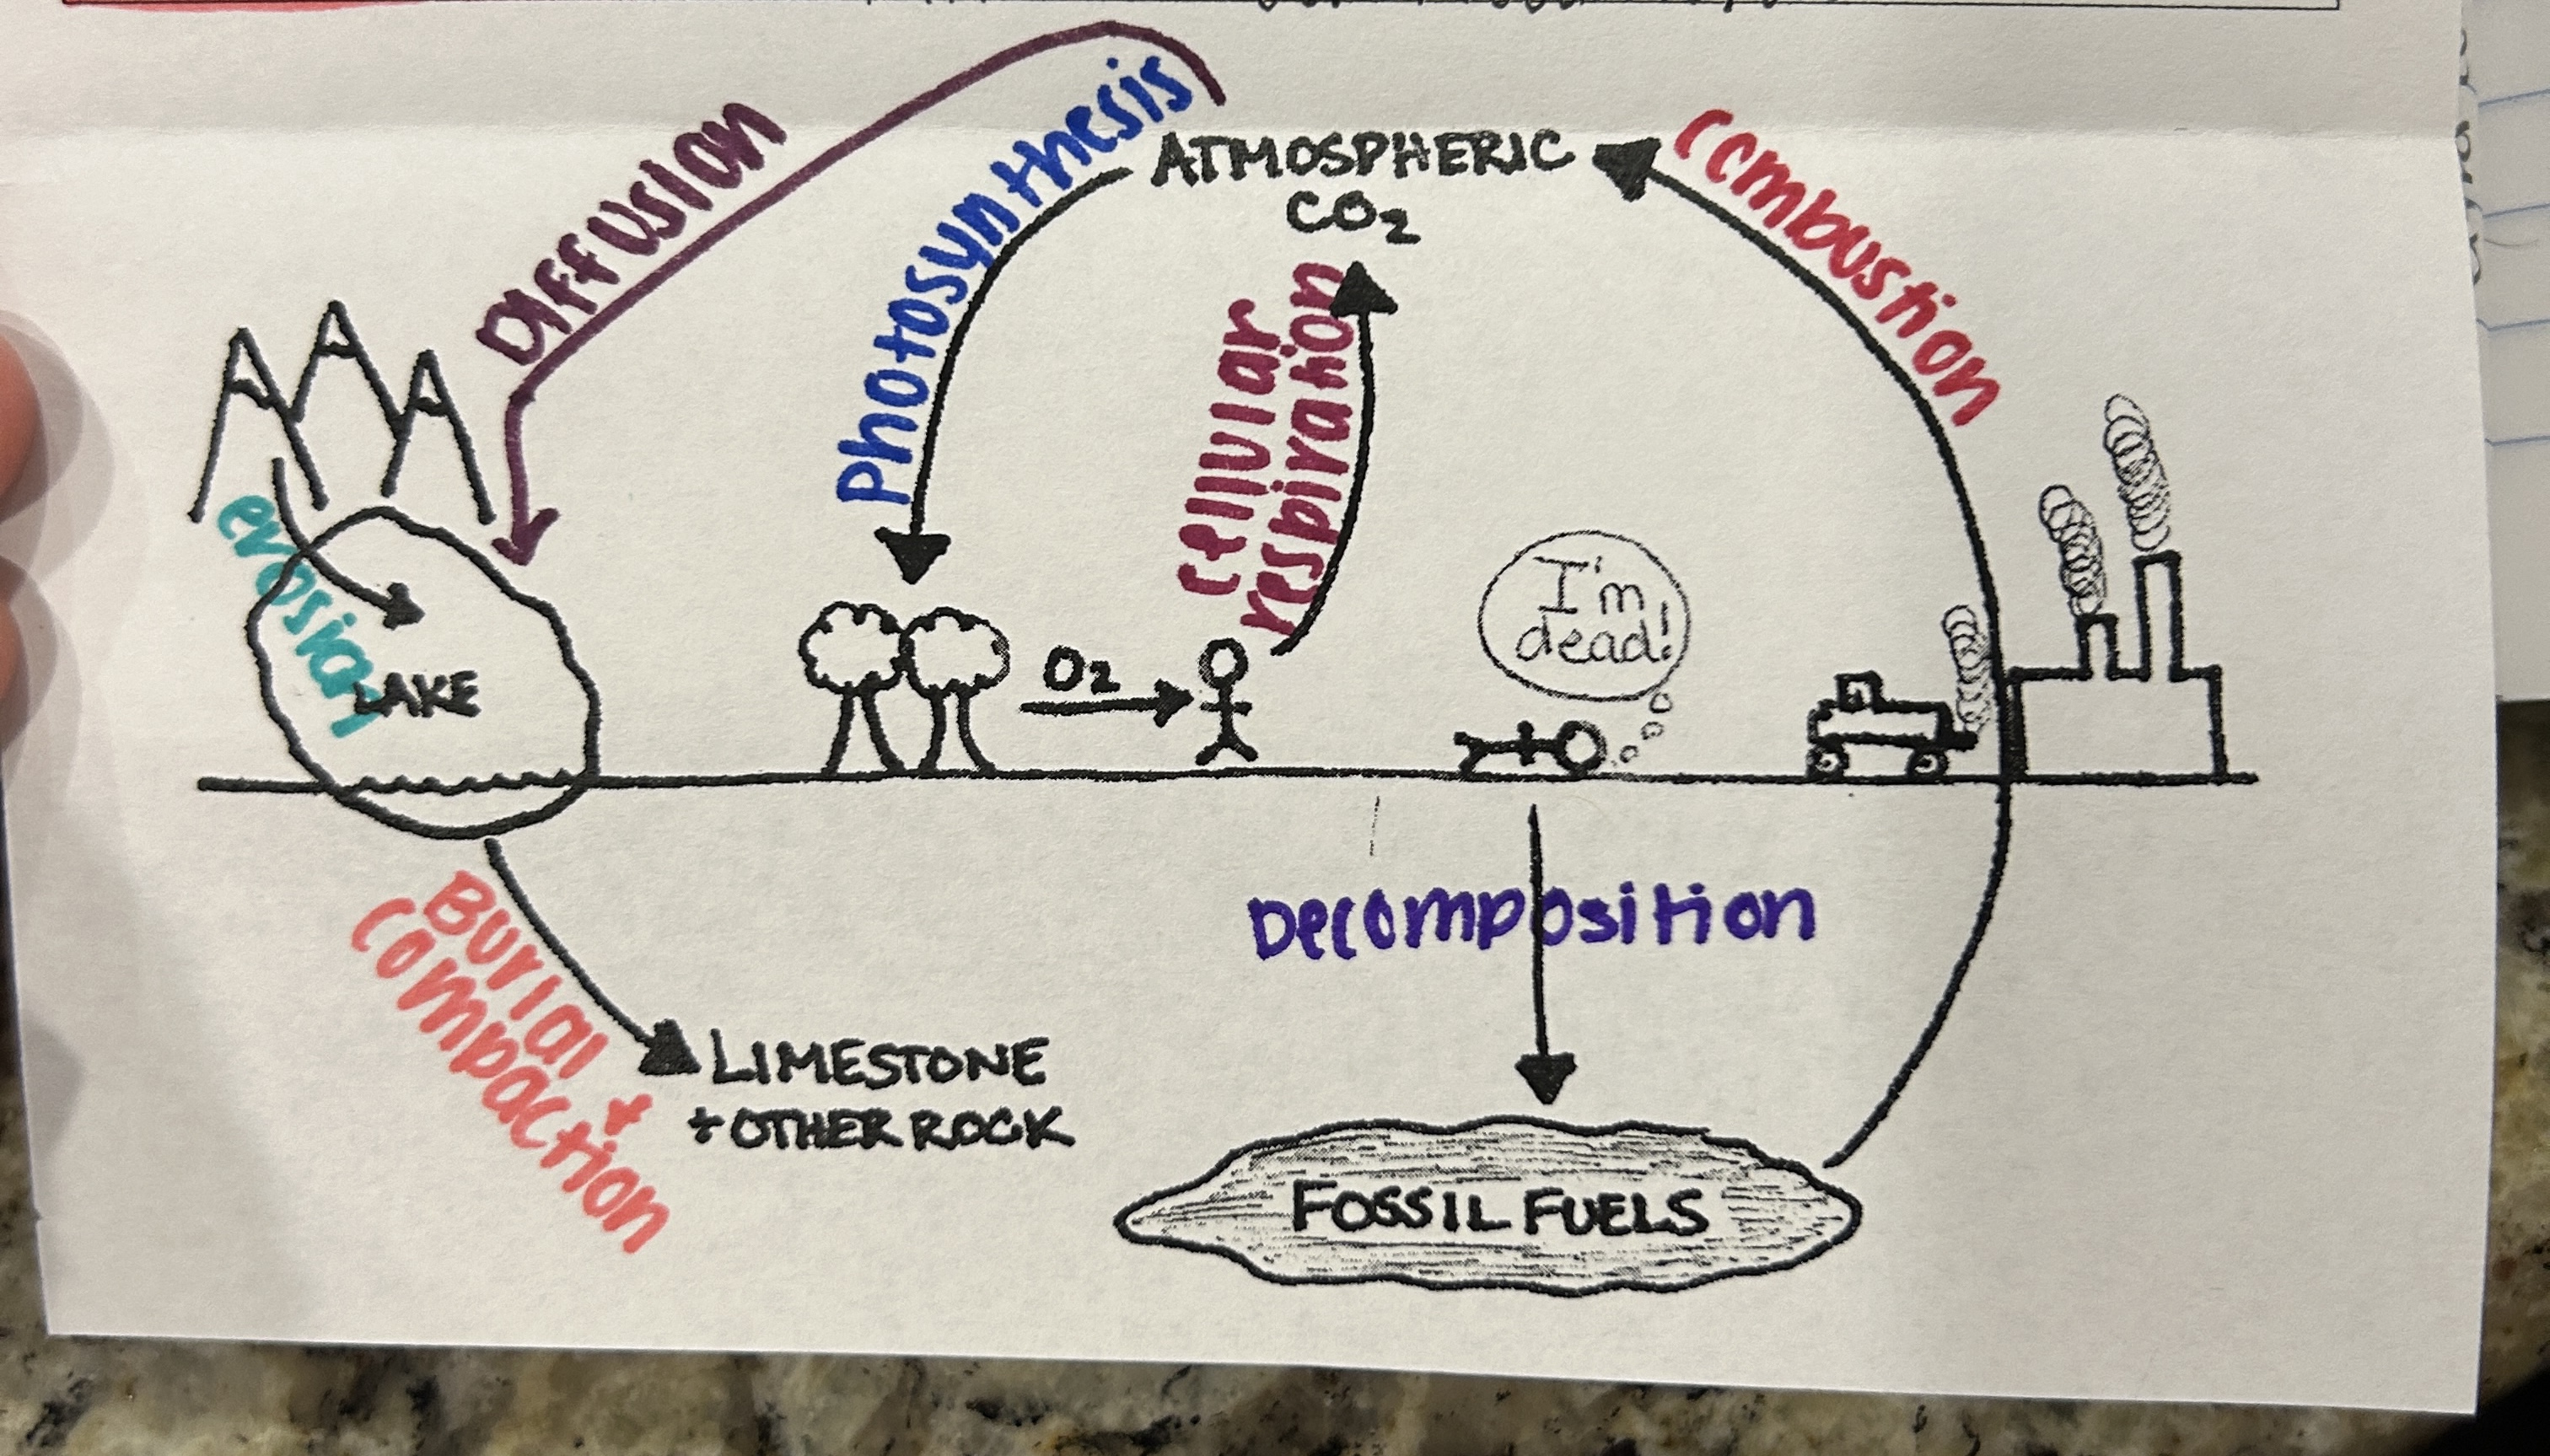 Diffusion
Photosynthesis
ATMOSPHERIC
CO₂
Combustion
cellular
respiration
erosion
LAKE
O₂
I'm
dead!
Burial +
Compaction
LIMESTONE
+ OTHER ROCK
Decomposition
FOSSIL FUELS